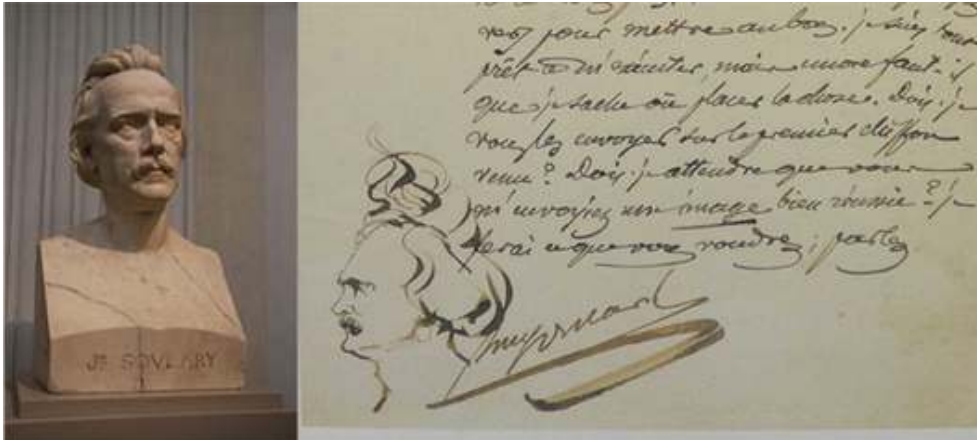 Jh SOVLARY
pour mettre au bas. je suis tout
prêt à m'exécuter, mais encore faut-il
que je sache où placer la chose. Dois-je
vous les envoyer sur le premier chiffon
venu? Dois-je attendre que vous
m'envoyiez une image bien réussie? je
ferai ce que vous voudrez; parlez